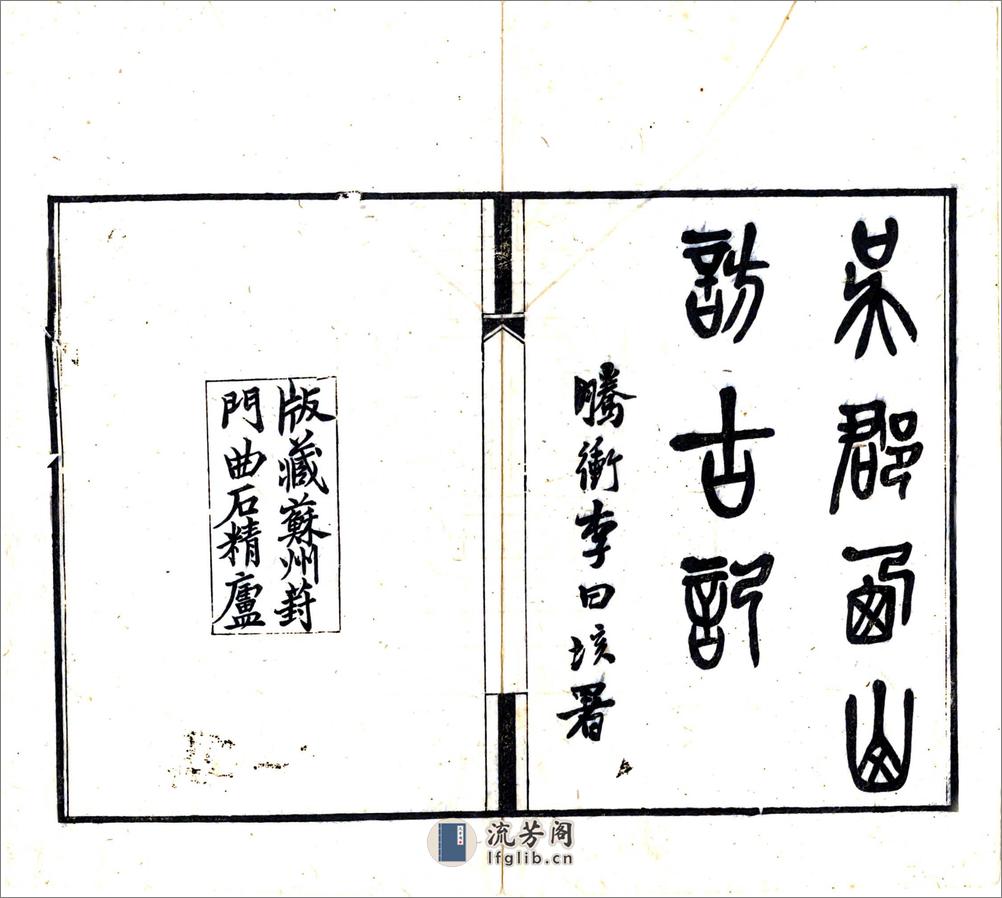 吳郡西山
訪古記
騰衝李曰垓署
版藏蘇州葑
門曲石精廬
流芳阁
lfglib.cn